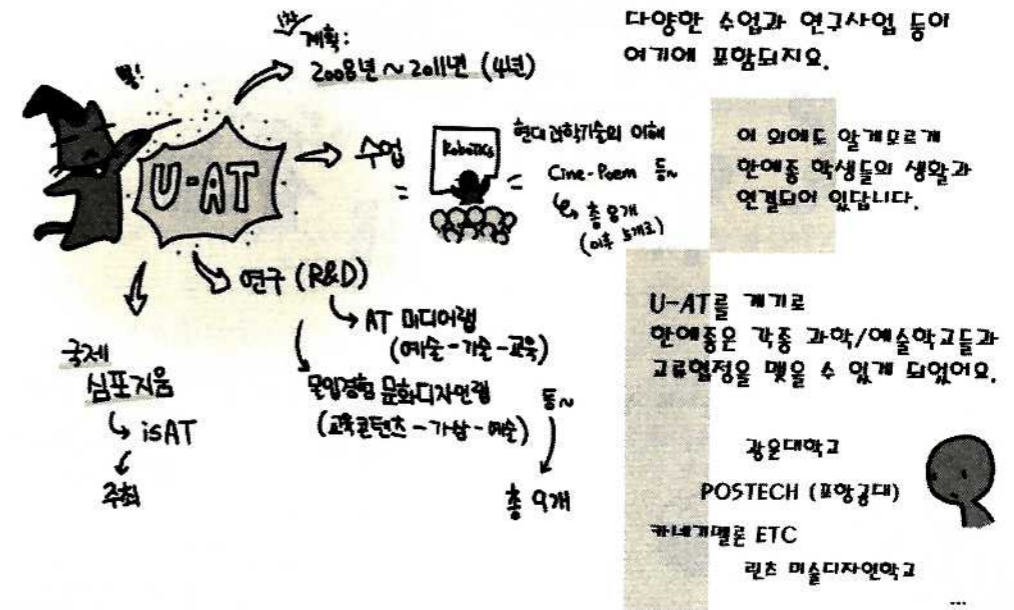 뿅!
U-AT
1차
계획:
2008년 ~ 2011년 (4년)
수업
Robotics
현대과학기술의 이해
Cine-Poem 등~
총 8개
(이후 5개로)
연구 (R&D)
AT 미디어랩
(예술-기술-교육)
몰입경험 문화디자인랩
(교육콘텐츠-가상-예술)
등~
총 9개
국제
심포지움
isAT
주최
다양한 수업과 연구사업 등이
여기에 포함되지요.
이 외에도 알게모르게
한예종 학생들의 생활과
연결되어 있답니다.
U-AT를 계기로
한예종은 각종 과학/예술학교들과
교류협정을 맺을 수 있게 되었어요.
광운대학교
POSTECH (포항공대)
카네기멜론 ETC
린츠 미술디자인학교
...